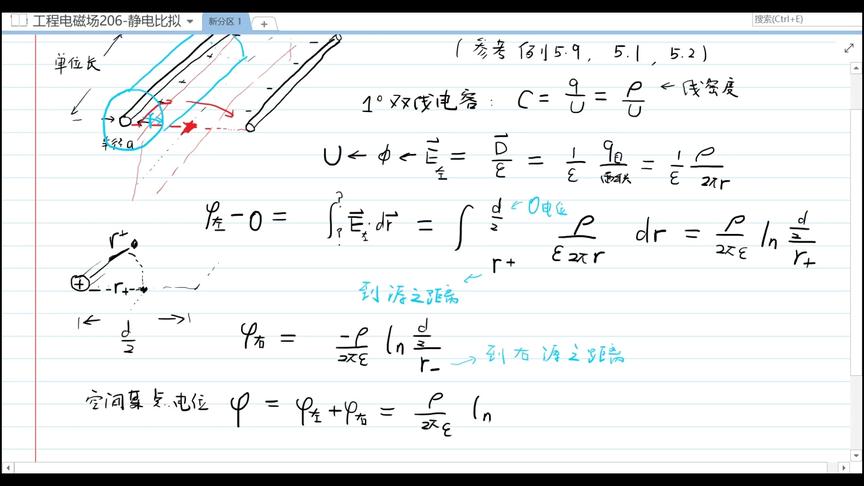 工程电磁场206-静电比拟
新分区 1
搜索(Ctrl+E)
(参考 例5.9, 5.1, 5.2)
单位长
半径a
1° 双线电容: C = q/U = ρ/U ← 线密度
U ← φ ← E⃗左 = D⃗/ε = 1/ε q自/面积 = 1/ε ρ/2πr
φ左 - 0 = ∫?? E⃗左·dr⃗ = ∫r+ d/2 ρ/ε2πr dr = ρ/2πε ln (d/2)/r+
← 0电位
到源之距离
r+
r+
d/2
φ右 = -ρ/2πε ln (d/2)/r- → 到右源之距离
空间某点电位 φ = φ左 + φ右 = ρ/2πε ln